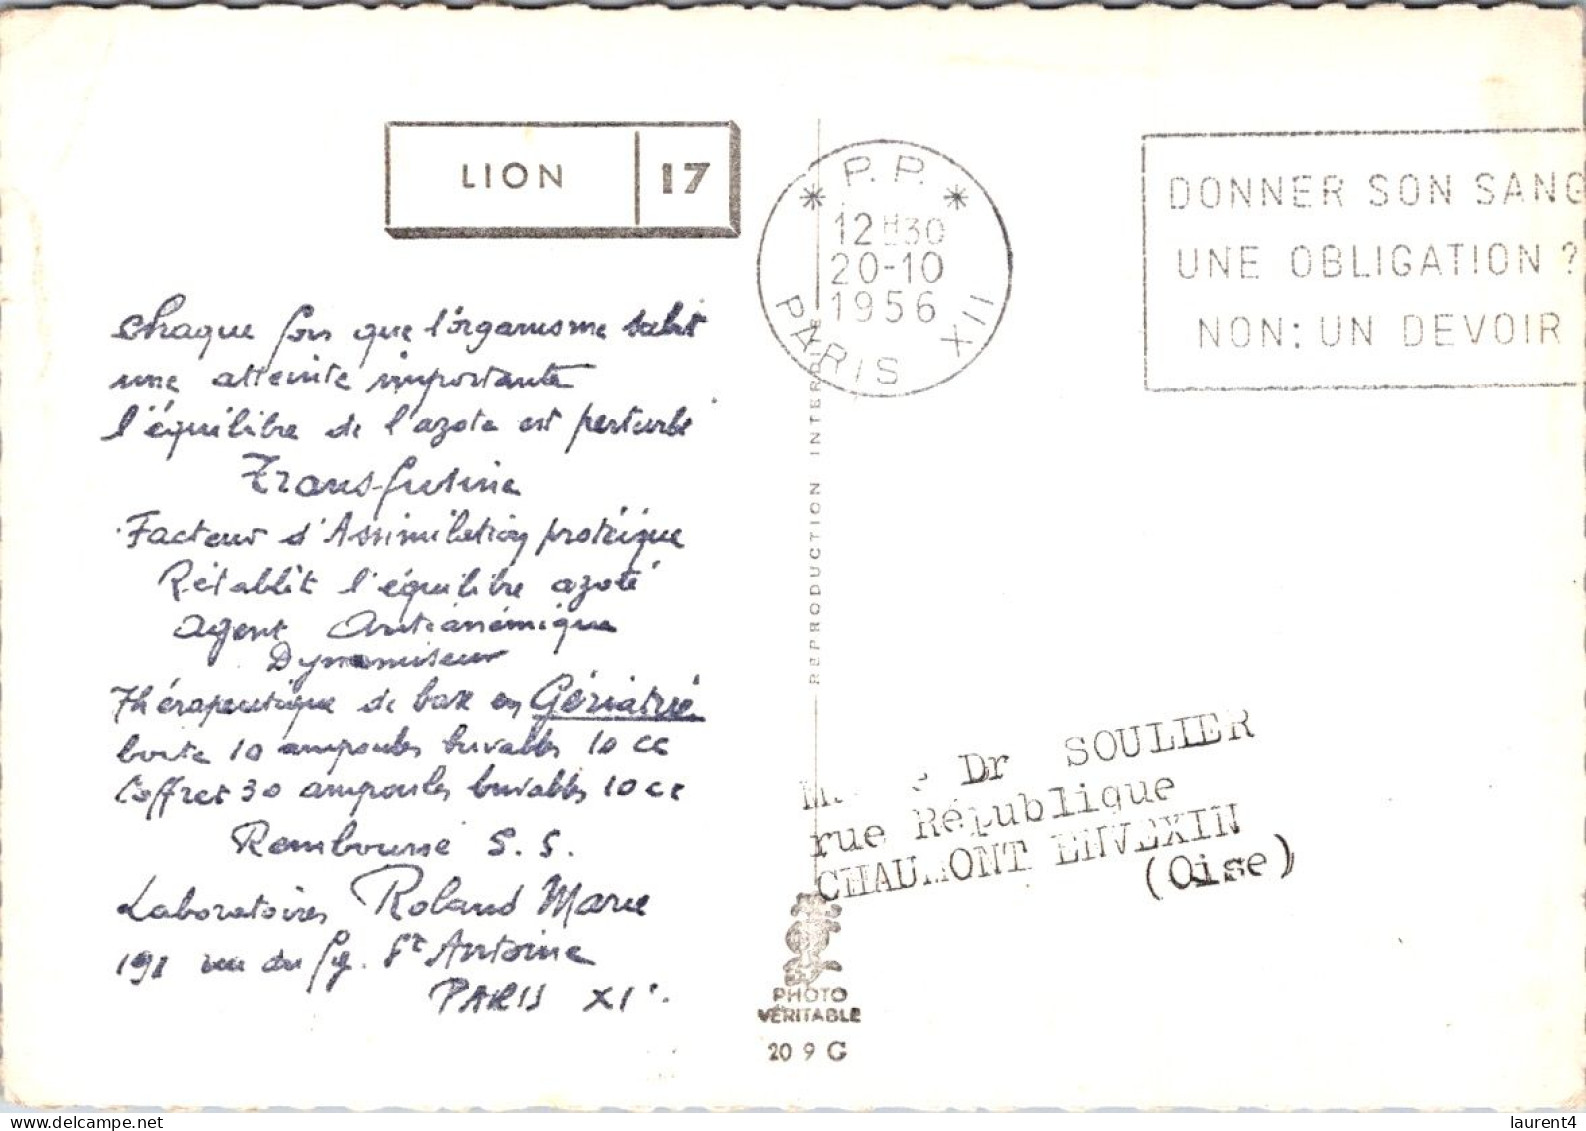 LION 17
P.P.
12H30
20-10
1956
PARIS XII
DONNER SON SANG
UNE OBLIGATION ?
NON: UN DEVOIR
Chaque fois que l'organisme subit
une atteinte importante
l'équilibre de l'azote est perturbé
Transfusine
Facteur d'Assimilation protéique
Rétablit l'équilibre azoté
Agent Antianémique
Dynamiseur
Thérapeutique de base en Gériatrie
boite 10 ampoules buvables 10 cc
Coffret 30 ampoules buvables 10 cc
Remboursé S.S.
Laboratoires Roland Marie
198 rue du Fg. St Antoine
PARIS XI
REPRODUCTION INTERDITE
Dr SOULIER
rue République
CHAUMONT ENVEXIN
(Oise)
PHOTO
VÉRITABLE
20 9 G
laurent4